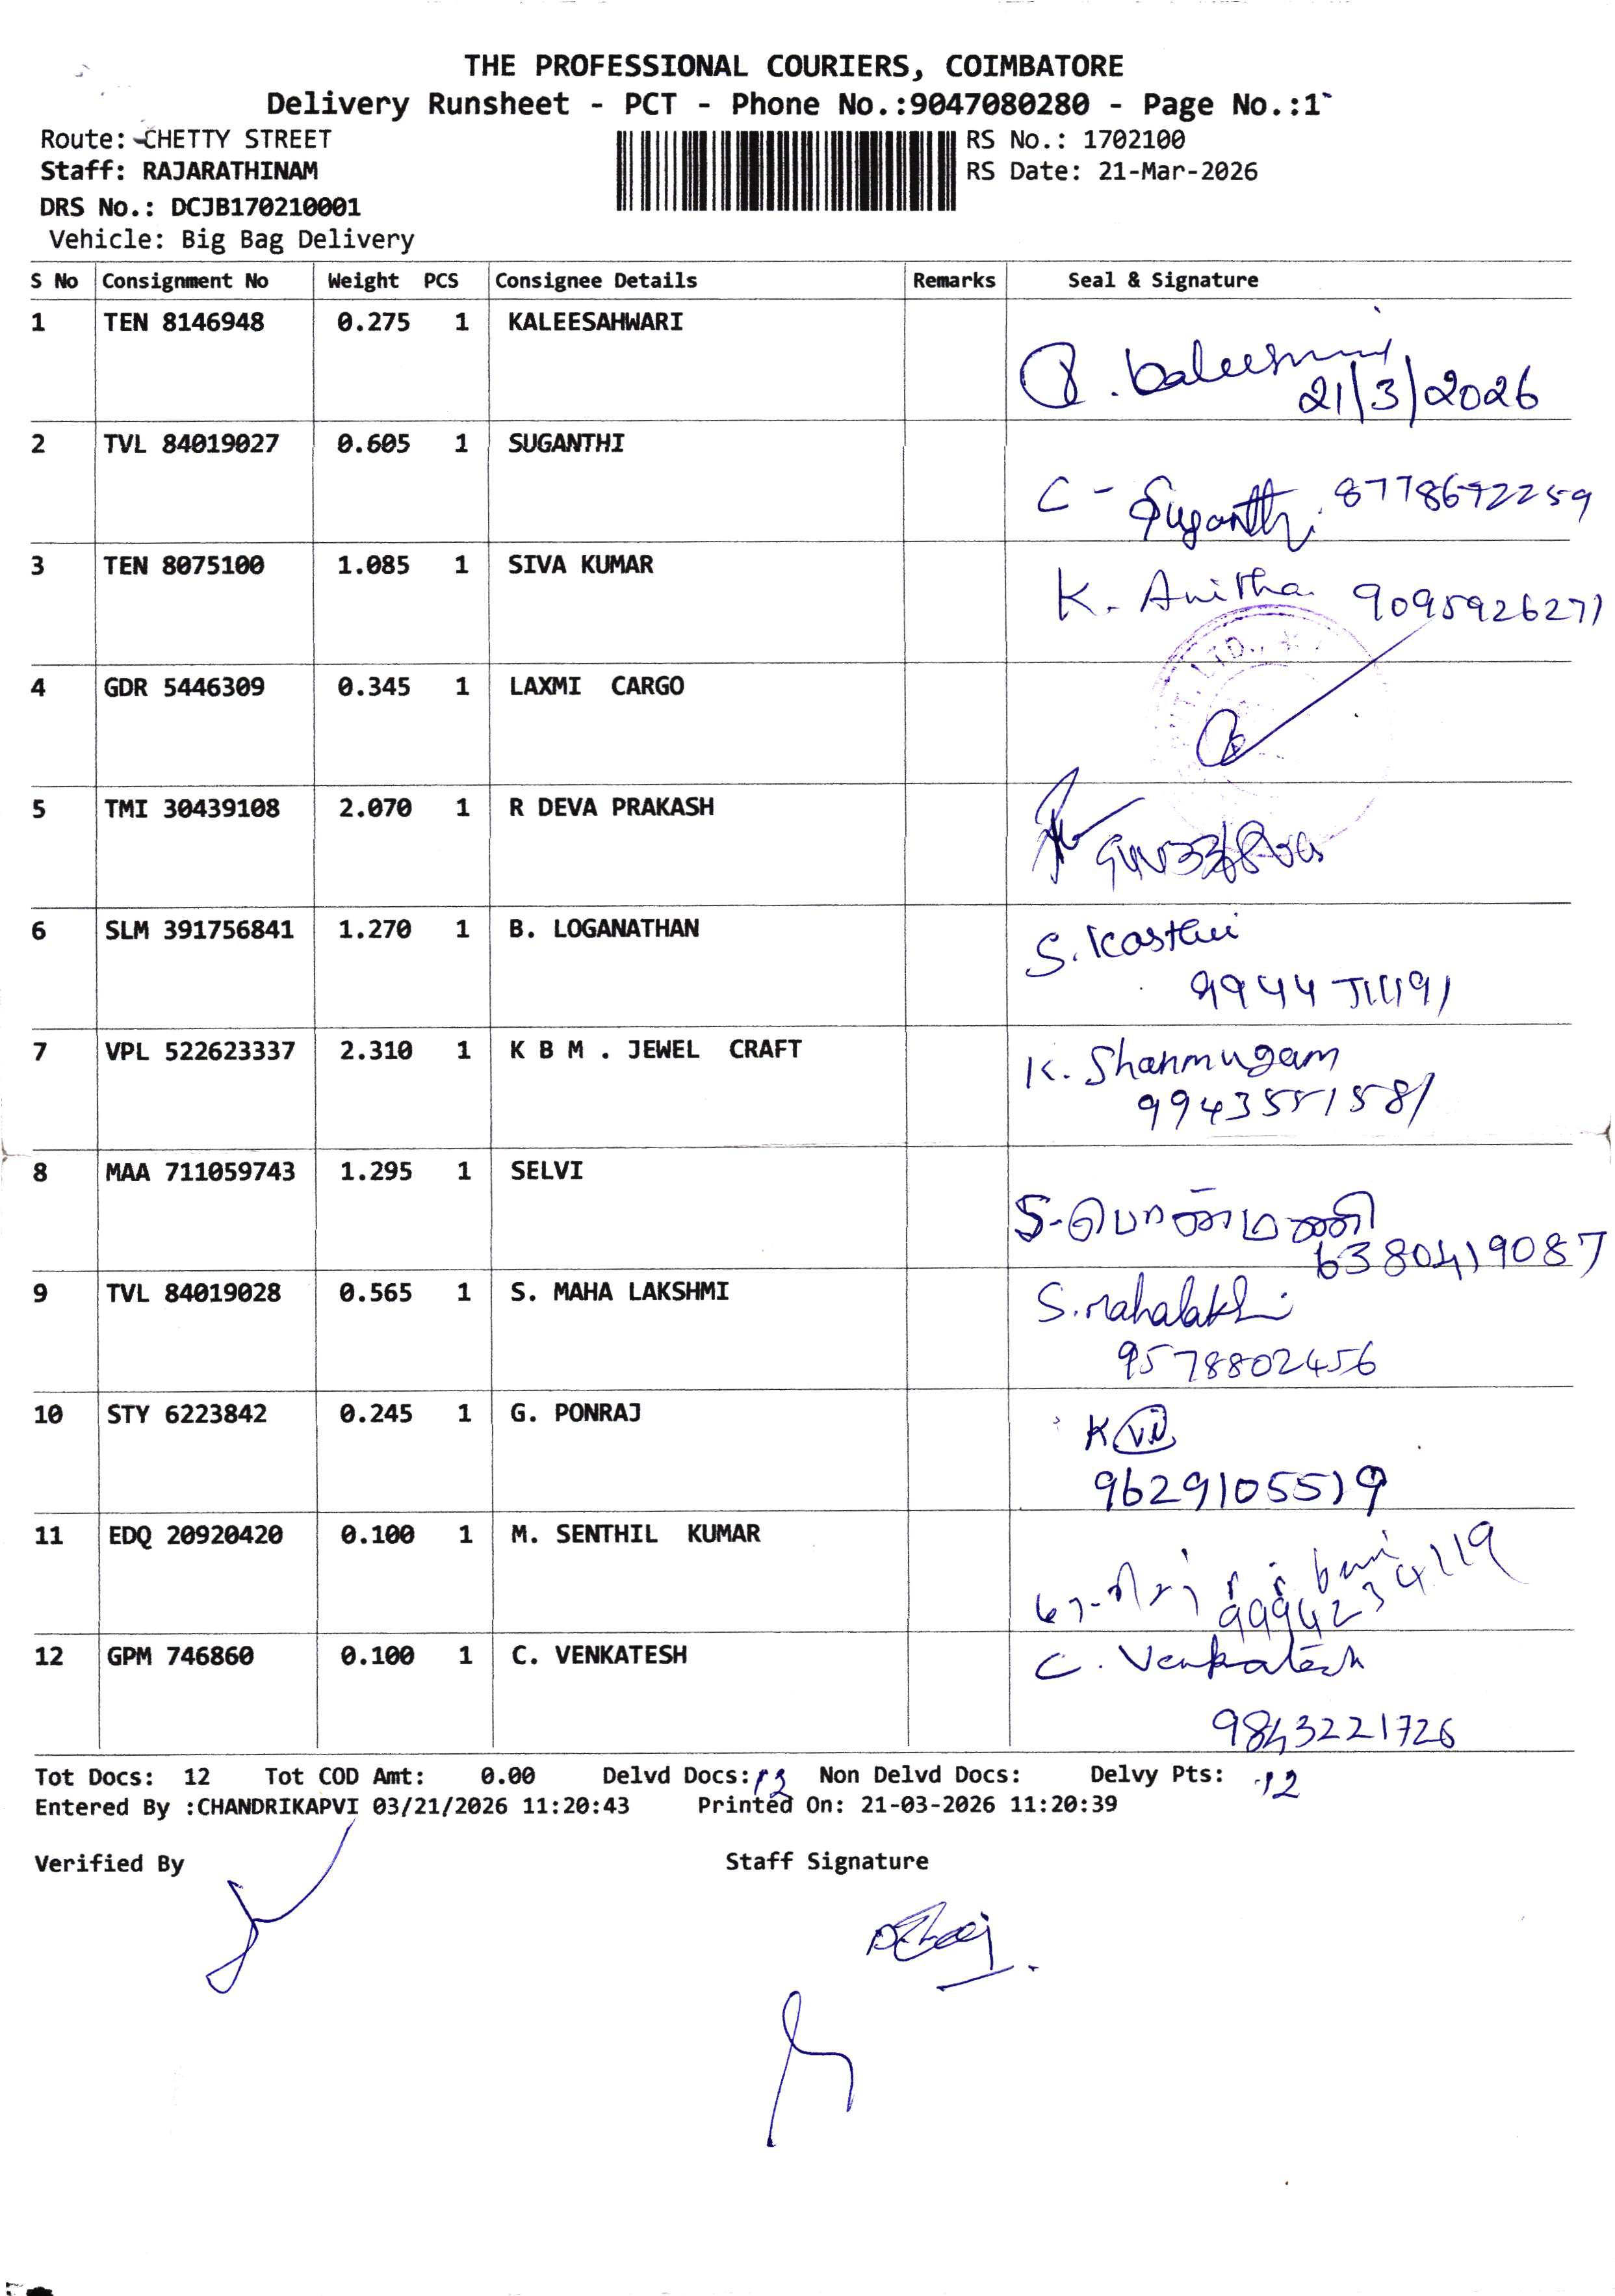 THE PROFESSIONAL COURIERS, COIMBATORE
Delivery Runsheet - PCT - Phone No.:9047080280 - Page No.:1
Route: CHETTY STREET
RS No.: 1702100
Staff: RAJARATHINAM
RS Date: 21-Mar-2026
DRS No.: DCJB170210001
Vehicle: Big Bag Delivery
S No Consignment No Weight PCS Consignee Details Remarks Seal & Signature
1 TEN 8146948 0.275 1 KALEESAHWARI
21/3/2026
2 TVL 84019027 0.605 1 SUGANTHI
C - Suganthi 8778672259
3 TEN 8075100 1.085 1 SIVA KUMAR
K. Anitha 9095926271
4 GDR 5446309 0.345 1 LAXMI CARGO
LTD.,
5 TMI 30439108 2.070 1 R DEVA PRAKASH
6 SLM 391756841 1.270 1 B. LOGANATHAN
S.
7 VPL 522623337 2.310 1 K B M . JEWEL CRAFT
K. Shanmugam
9943551581
8 MAA 711059743 1.295 1 SELVI
S-பொன்மணி
6380419087
9 TVL 84019028 0.565 1 S. MAHA LAKSHMI
S.
9578802456
10 STY 6223842 0.245 1 G. PONRAJ
K
9629105519
11 EDQ 20920420 0.100 1 M. SENTHIL KUMAR
9994234119
12 GPM 746860 0.100 1 C. VENKATESH
C. Venkatesh
9843221726
Tot Docs: 12 Tot COD Amt: 0.00 Delvd Docs: 12 Non Delvd Docs: Delvy Pts: 12
Entered By :CHANDRIKAPVI 03/21/2026 11:20:43 Printed On: 21-03-2026 11:20:39
Verified By Staff Signature